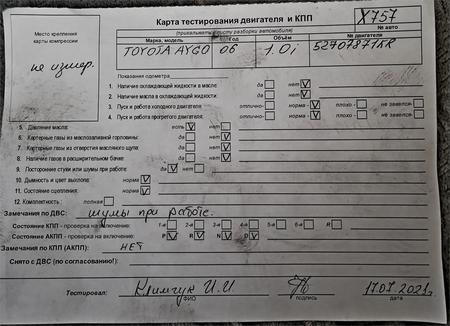 Место крепления
карты компрессии
не измер.
Карта тестирования двигателя и КПП
X757
(прикалывать к листу разборки автомобиля)
№ авто
Марка, модель Год Объём № двигателя
TOYOTA AYGO 06 1.0i
Показания одометра
1. Наличие охлаждающей жидкости в масле: да нет V
2. Наличие масла в охлаждающей жидкости: да нет V
3. Пуск и работа холодного двигателя: отлично- норма- V плохо- не завелся-
4. Пуск и работа прогретого двигателя: отлично- норма- V плохо- не завелся-
5. Давление масла: есть V нет
6. Картерные газы из маслозаливной горловины: да нет V
7. Картерные газы из отверстия масляного щупа: да нет V
8. Наличие газов в расширительном бачке: да нет V
9. Посторонние стуки или шумы при работе: да V нет
10. Дымность и цвет выхлопа: норма V
11. Состояние сцепления: норма V
12. Комплектность: полная
Замечания по ДВС: шумы при работе.
Состояние КПП - проверка на включение: 1-я 2-я 3-я 4-я 5-я 6-я R-
Состояние АКПП - проверка на включение: P V R V N V D V
Замечания по КПП (АКПП): НЕТ
Снято с ДВС (по согласованию!):
Тестировал: Климчук И.И 17.07.2021г
ФИО подпись дата